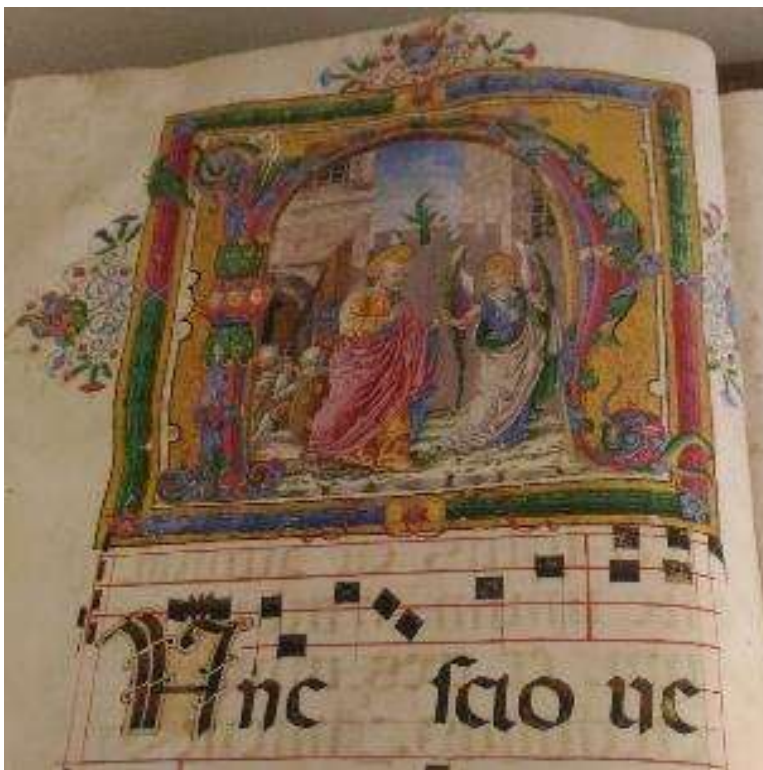 NUnc ſcio ue